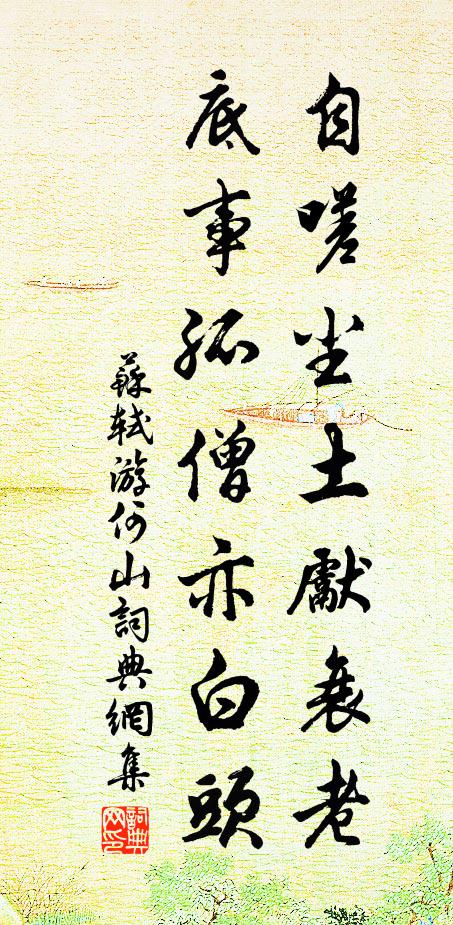 自嗟尘土獻衰老
底事孤僧亦白頭
蘇軾游何山詞典網集
詞典
网印